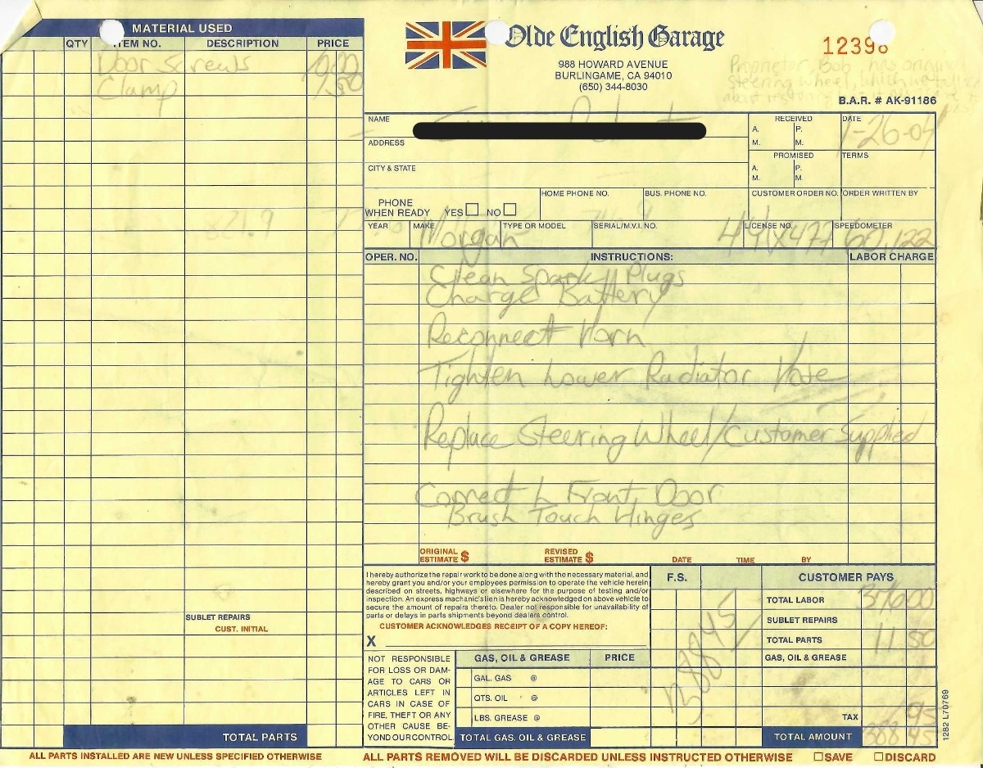 MATERIAL USED
QTY ITEM NO. DESCRIPTION PRICE
Door Screws 10.00
Clamp 1.50
SUBLET REPAIRS
CUST. INITIAL
TOTAL PARTS
ALL PARTS INSTALLED ARE NEW UNLESS SPECIFIED OTHERWISE
Olde English Garage
988 HOWARD AVENUE
BURLINGAME, CA 94010
(650) 344-8030
12396
Proprietor, Bob, has original
Steering Wheel, which
B.A.R. # AK-91186
NAME
ADDRESS
CITY & STATE
RECEIVED
A. M. P. M.
DATE
1-26-04
PROMISED
A. M. P. M.
TERMS
PHONE WHEN READY YES NO
HOME PHONE NO.
BUS. PHONE NO.
CUSTOMER ORDER NO.
ORDER WRITTEN BY
YEAR
MAKE
Morgan
TYPE OR MODEL
SERIAL/M.V.I. NO.
LICENSE NO.
SPEEDOMETER
60,122
OPER. NO. INSTRUCTIONS: LABOR CHARGE
Clean Spark Plugs
Charge Battery
Reconnect Horn
Tighten Lower Radiator Hose
Replace Steering Wheel/Customer Supplied
Correct L Front Door
Brush Touch Hinges
ORIGINAL ESTIMATE $ REVISED ESTIMATE $ DATE TIME BY
I hereby authorize the repair work to be done along with the necessary material, and
hereby grant you and/or your employees permission to operate the vehicle herein
described on streets, highways or elsewhere for the purpose of testing and/or
inspection. An express mechanic's lien is hereby acknowledged on above vehicle to
secure the amount of repairs thereto. Dealer not responsible for unavailability of
parts or delays in parts shipments beyond dealers control.
CUSTOMER ACKNOWLEDGES RECEIPT OF A COPY HEREOF:
X
NOT RESPONSIBLE
FOR LOSS OR DAM-
AGE TO CARS OR
ARTICLES LEFT IN
CARS IN CASE OF
FIRE, THEFT OR ANY
OTHER CAUSE BE-
YOND OUR CONTROL.
GAS, OIL & GREASE PRICE
GAL. GAS @
QTS. OIL @
LBS. GREASE @
TOTAL GAS. OIL & GREASE
F.S.
CUSTOMER PAYS
TOTAL LABOR 376.00
SUBLET REPAIRS
TOTAL PARTS 11.50
GAS, OIL & GREASE
TAX .95
TOTAL AMOUNT 388.45
1282 L70769
ALL PARTS REMOVED WILL BE DISCARDED UNLESS INSTRUCTED OTHERWISE SAVE DISCARD